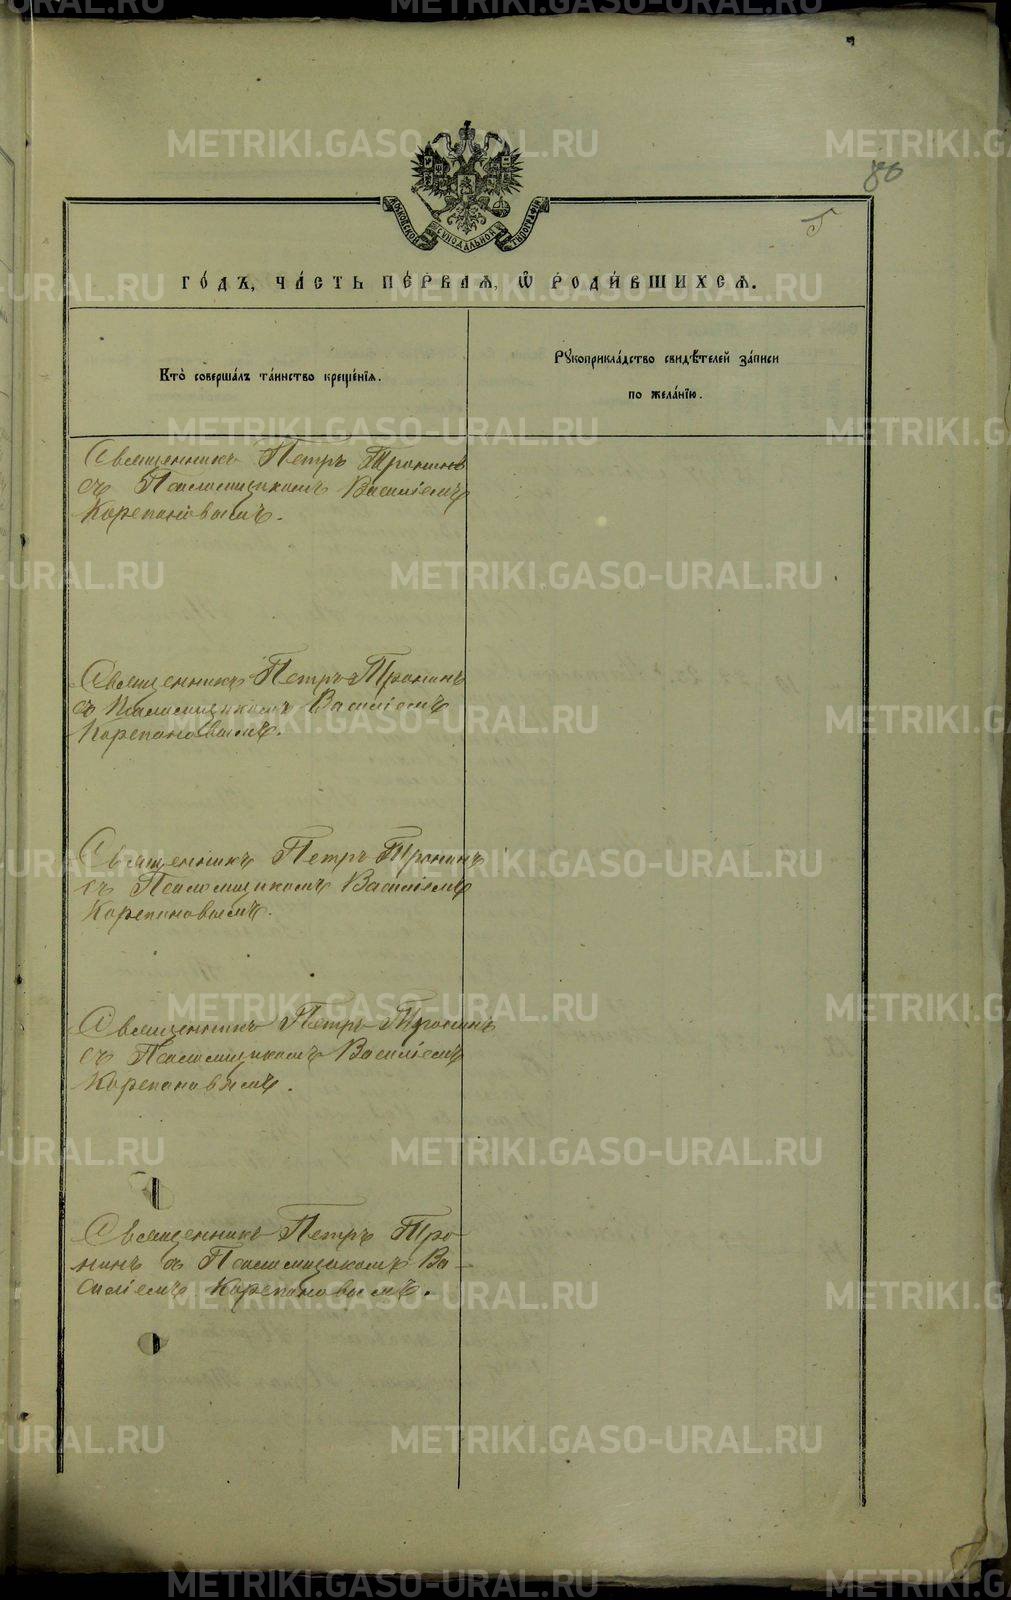 80
5
МОСКОВСКОЙ СѴНОДАЛЬНОЙ ТИПОГРАФІИ
ГО́ДЪ, ЧА́СТЬ ПЕ́РВАѦ, Ѽ РОДИ́ВШИХСѦ.
Кто̀ соверша́лъ та́инство креще́нїѧ.
Рꙋкоприкла́дство свидѣ́телей за́писи
по жела́нїю.
Священникъ Петръ Тронинъ
съ Псаломщикомъ Василіемъ
Корепановымъ.
Священникъ Петръ Тронинъ
съ Псаломщикомъ Василіемъ
Корепановымъ.
Священникъ Петръ Тронинъ
съ Псаломщикомъ Василіемъ
Корепановымъ.
Священникъ Петръ Тронинъ
съ Псаломщикомъ Василіемъ
Корепановымъ.
Священникъ Петръ Тро-
нинъ съ Псаломщикомъ Ва-
силіемъ Корепановымъ.
METRIKI.GASO-URAL.RU